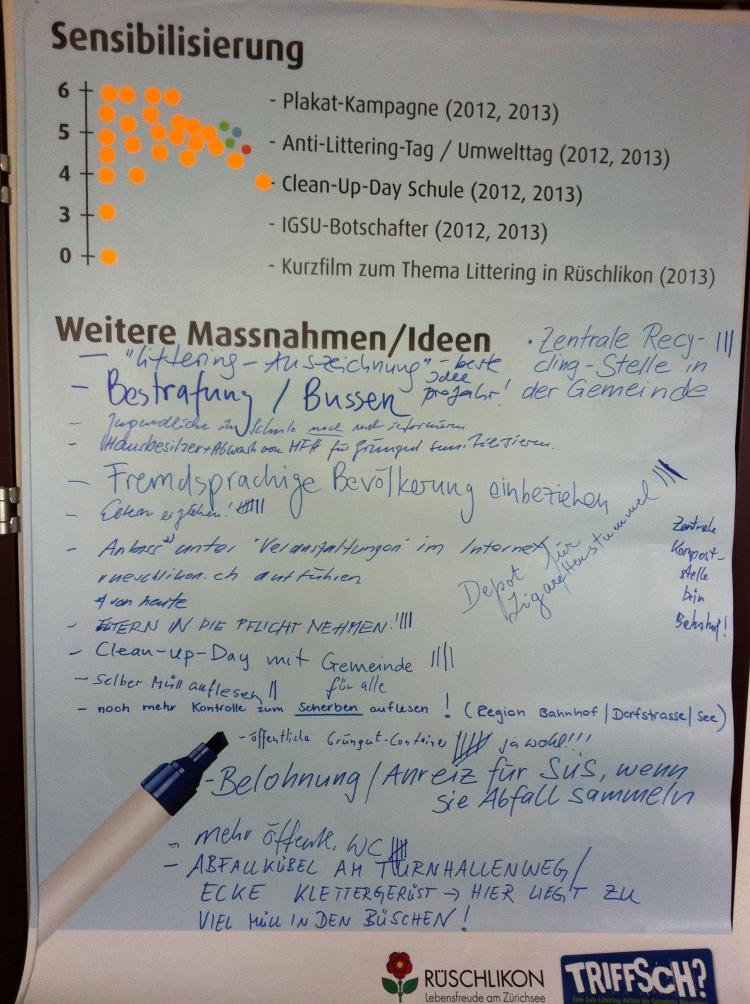 Sensibilisierung
6
5
4
3
0
- Plakat-Kampagne (2012, 2013)
- Anti-Littering-Tag / Umwelttag (2012, 2013)
- Clean-Up-Day Schule (2012, 2013)
- IGSU-Botschafter (2012, 2013)
- Kurzfilm zum Thema Littering in Rüschlikon (2013)
Weitere Massnahmen/Ideen
- "Littering-Auszeichnung" - beste
Idee
pro Jahr!
- Bestrafung / Bussen
· Zentrale Recy-
cling-Stelle in
der Gemeinde
- Jugendliche in Schule noch mehr informieren
- Hausbesitzer + Abwash von MFH für Grüngut sensibilisieren.
- Fremdsprachige Bevölkerung einbeziehen
- Eltern erziehen!
- Anlass unter "Veranstaltungen" im Internet
rueschlikon.ch aufführen
von heute
Depot für
Zigarettenstummel
Zentrale
Kompost-
stelle
beim
Bahnhof!
- ELTERN IN DIE PFLICHT NEHMEN!
- Clean-up-Day mit Gemeinde
für alle
- Selber Müll auflesen
- noch mehr Kontrolle zum Scherben auflesen ! (Region Bahnhof / Dorfstrasse / See)
- öffentliche Grüngut-Container jawohl!!!
- Belohnung / Anreiz für SuS, wenn
sie Abfall sammeln
- mehr öffentl. WC
- ABFALLKÜBEL AM TURNHALLENWEG/
ECKE KLETTERGERÜST → HIER LIEGT ZU
VIEL MÜLL IN DEN BÜSCHEN!
RÜSCHLIKON
Lebensfreude am Zürichsee
TRIFFSCH?